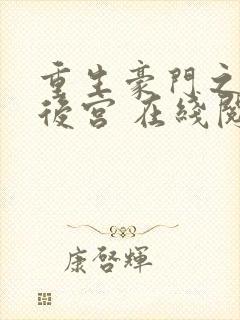 重生豪門之
後宮 在綫閱
康啓輝